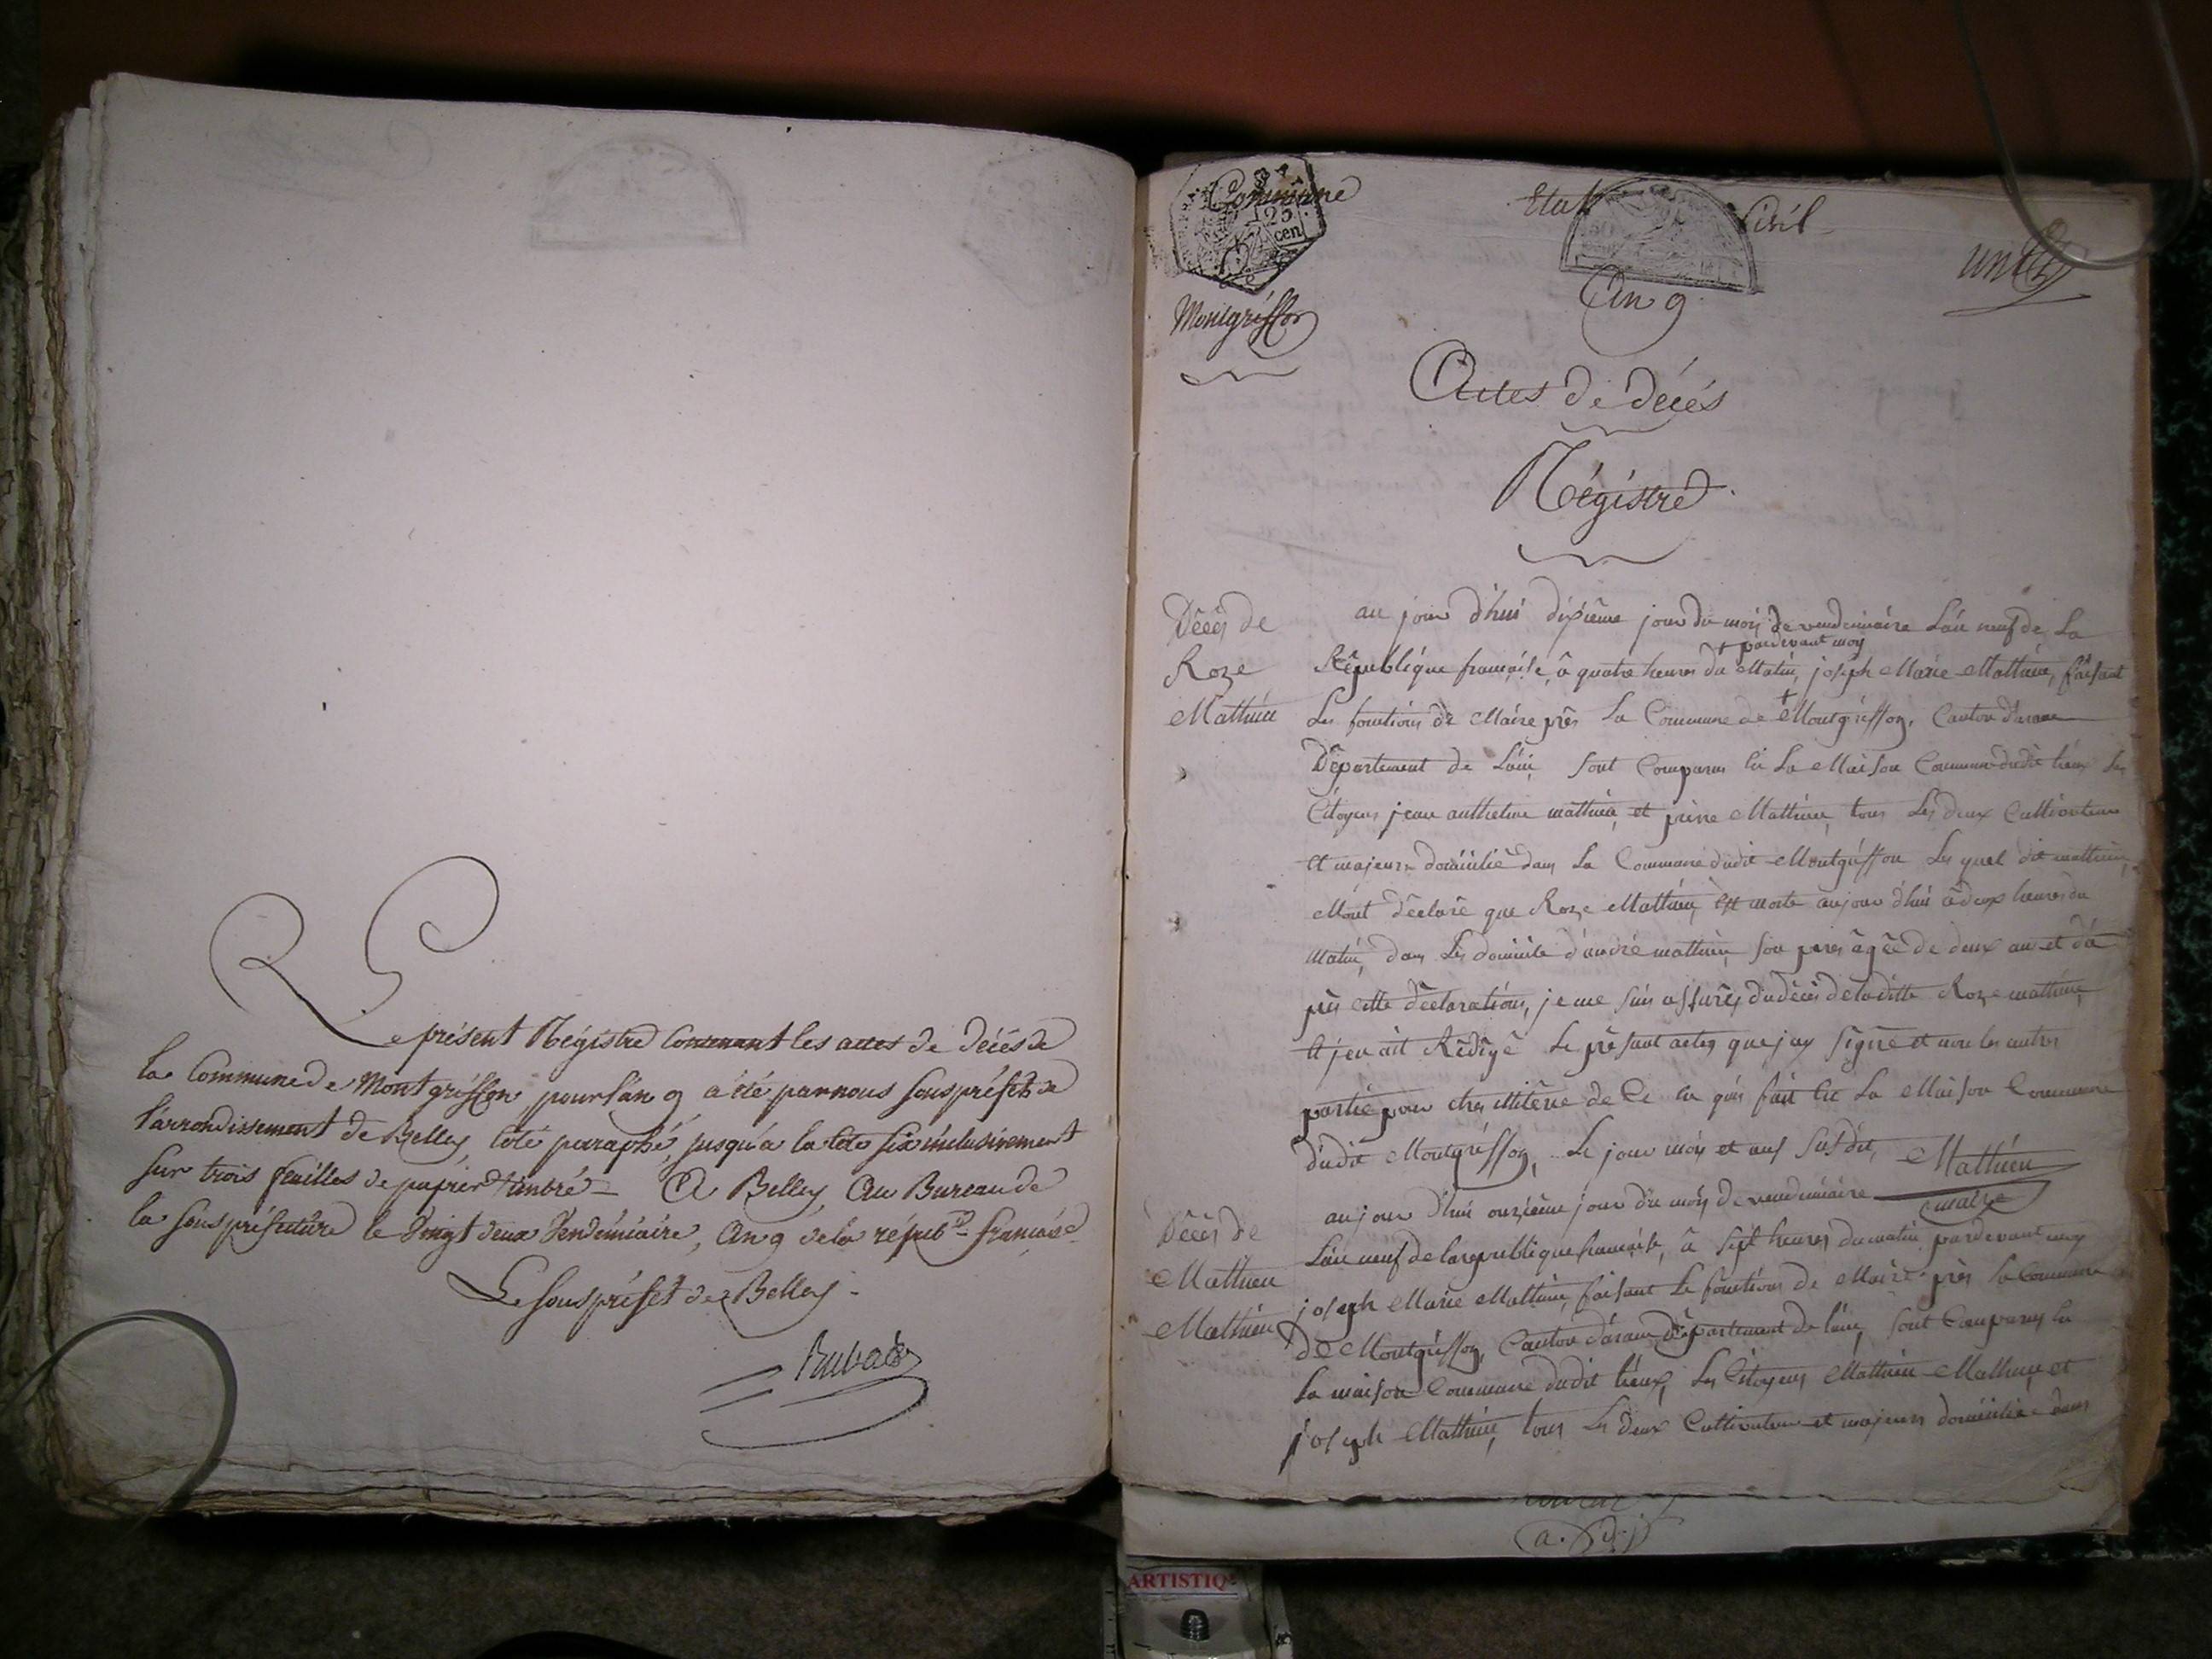 Le présent Régistre Contenant les actes de décès de
la Commune de Montgriffon pour l'an 9 a été par nous sous préfet de
l'arrondissement de Belley, coté paraphé, jusqu'à la cote six inclusivement
sur trois feuilles de papier timbré - A Belley Au Bureau de
la sous préfecture le Vingt deux Vendémiaire, An 9 de la répub. française
Le sous préfet de Belley.
Commune
25
cen
Montgriffon
Etat Civil
un
An 9.
Actes de décès
Régistre
Décès de
Roze
Mathieu
au jour d'hui dixième jour du mois de vendemiaire L'an neuf de La
+ pardevant moy
République française, à quatre heures du Matin, joseph Marie Mathieu, faisant
Les fonctions de Maire près La Commune de + Montgriffon, Canton d'aranc
Département de L'ain, sont Comparus en La Maison Commune dudit lieux Les
Citoyens jean anthelme mathieu, et pierre Mathieu, tous Les deux Cultivateurs
et majeurs domicilié dans La Commune dudit Montgriffon Les quel dit mathieu,
M'ont déclaré que Roze Mathieu, est morte aujour d'hui à deux heures du
matin, dans Le domicile d'andré mathieu, son père âgée de deux an et d'a
près cette déclarations, je me suis assurés du décès de laditte Roze mathieu,
et j'en ait Rédigé Le présant actes que j'ay signé et non les autres
partie pour être illitéré de Ce en quis fait en La Maison Commune
dudit Montgriffon, Le jour mois et ans susdit, Mathieu
maire
Décès de
Mathieu
Mathieu
aujour d'hui onzième jour du mois de vendémiaire
L'an neuf de la republique française, à sept heures du matin pardevant moy
joseph Marie Mathieu, faisant Le fonctions de Maire près La Commune
de Montgriffon, Canton d'aranc Département de l'ain, sont Comparus en
La maison Commune dudit lieux, Les Citoyens Mathieu Mathieu, et
joseph Mathieu, tous Les deux Cultivateurs et majeurs domicilié dans
ARTISTIQ